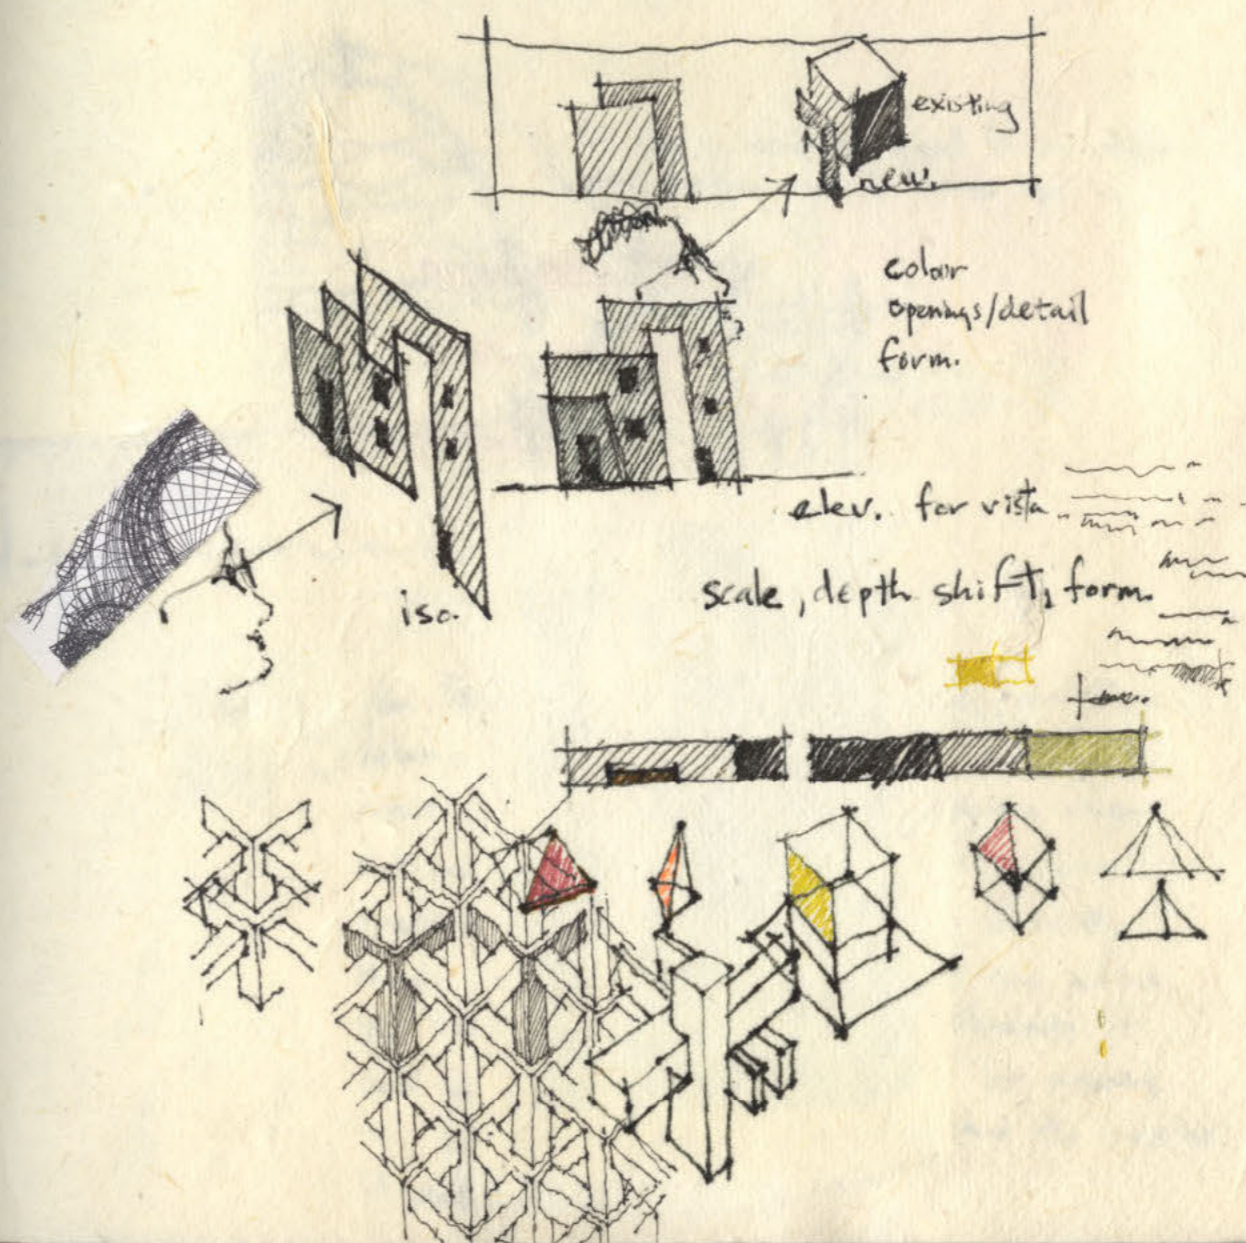 existing
new.
colour
openings/detail
form.
elev. for vista
iso.
scale, depth shift, form.